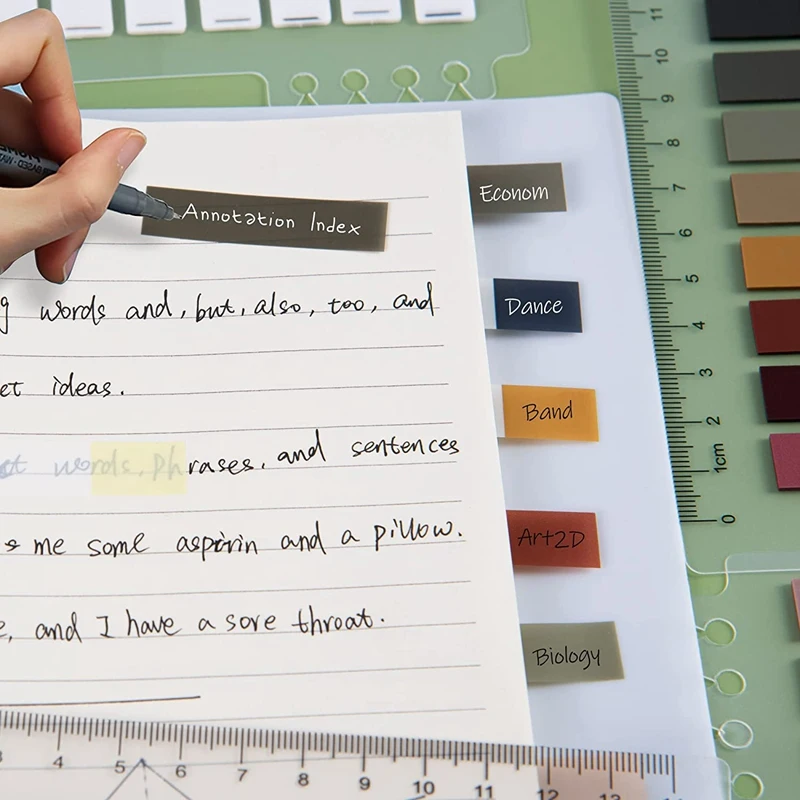 Annotation Index
words and, but, also, too, and
ideas.
words, phrases, and sentences
me some aspirin and a pillow.
and I have a sore throat.
Econom
Dance
Band
Art2D
Biology
11
10
9
8
7
6
5
4
3
2
1cm
0
4 5 6 7 8 9 10 11 12 13